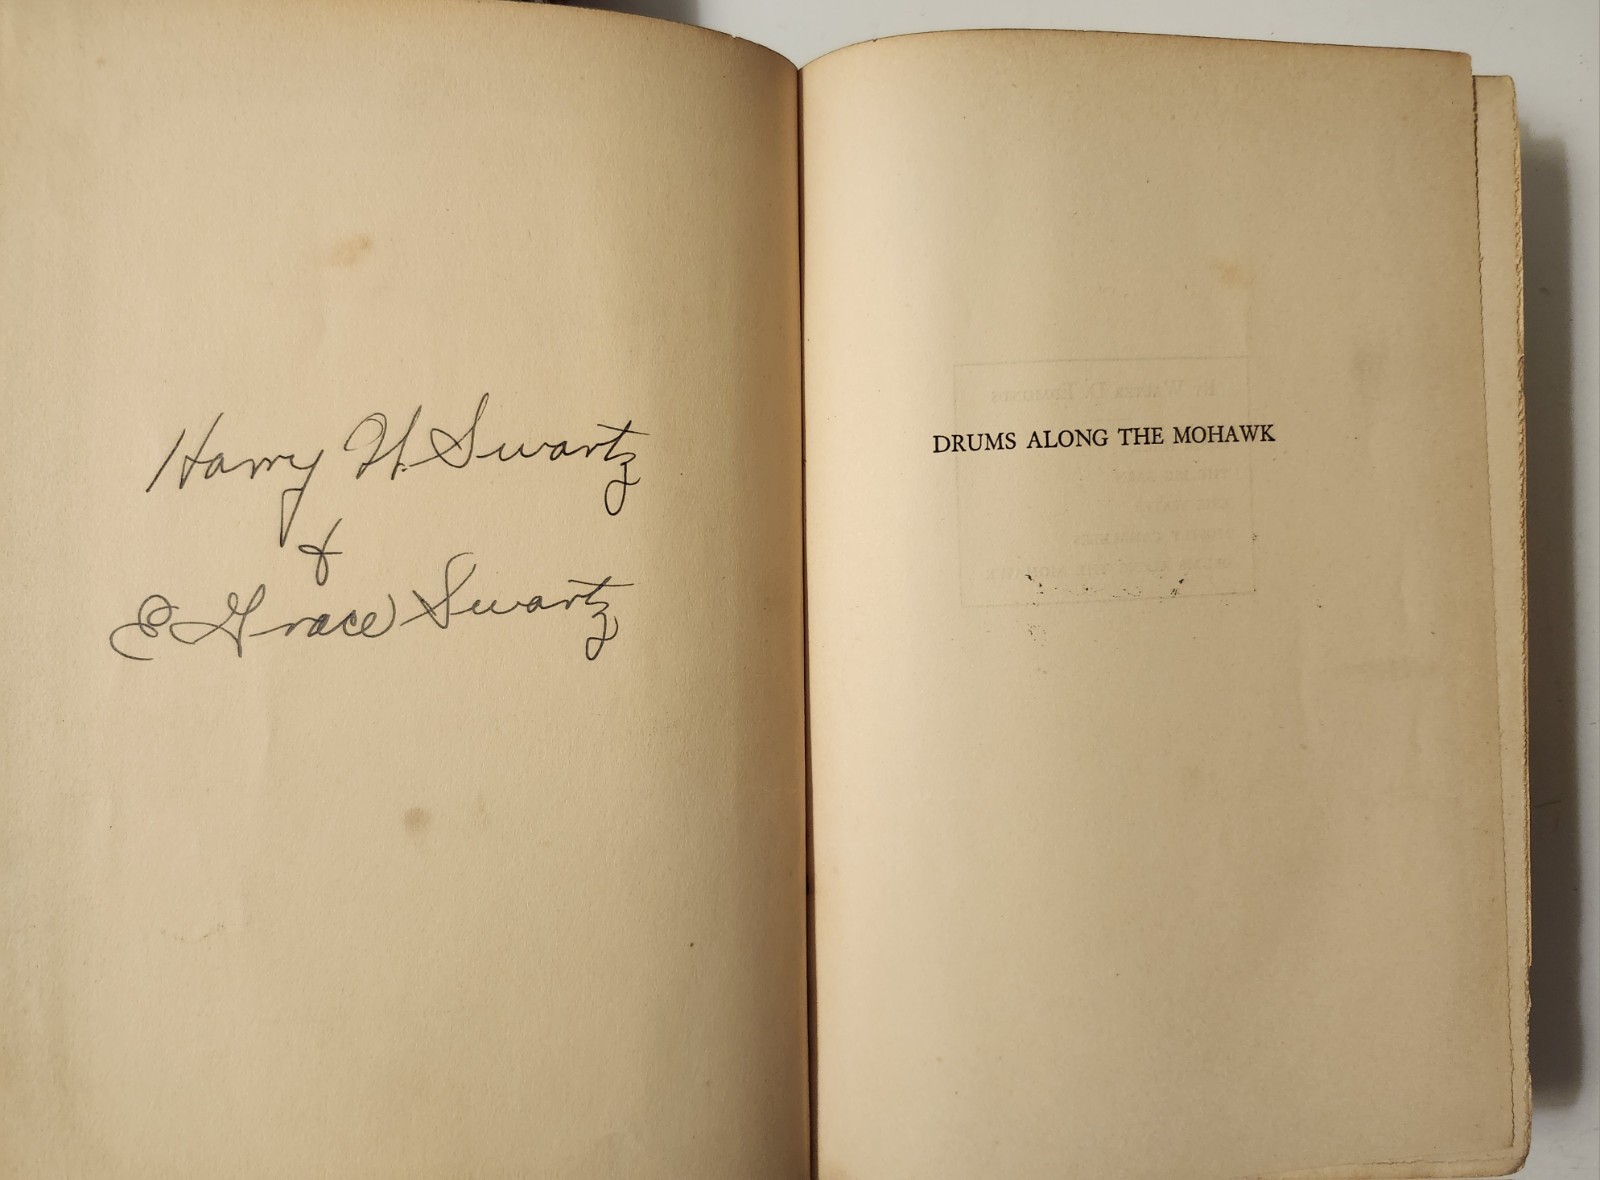 Harry H. Swartz
&
E Grace Swartz
DRUMS ALONG THE MOHAWK